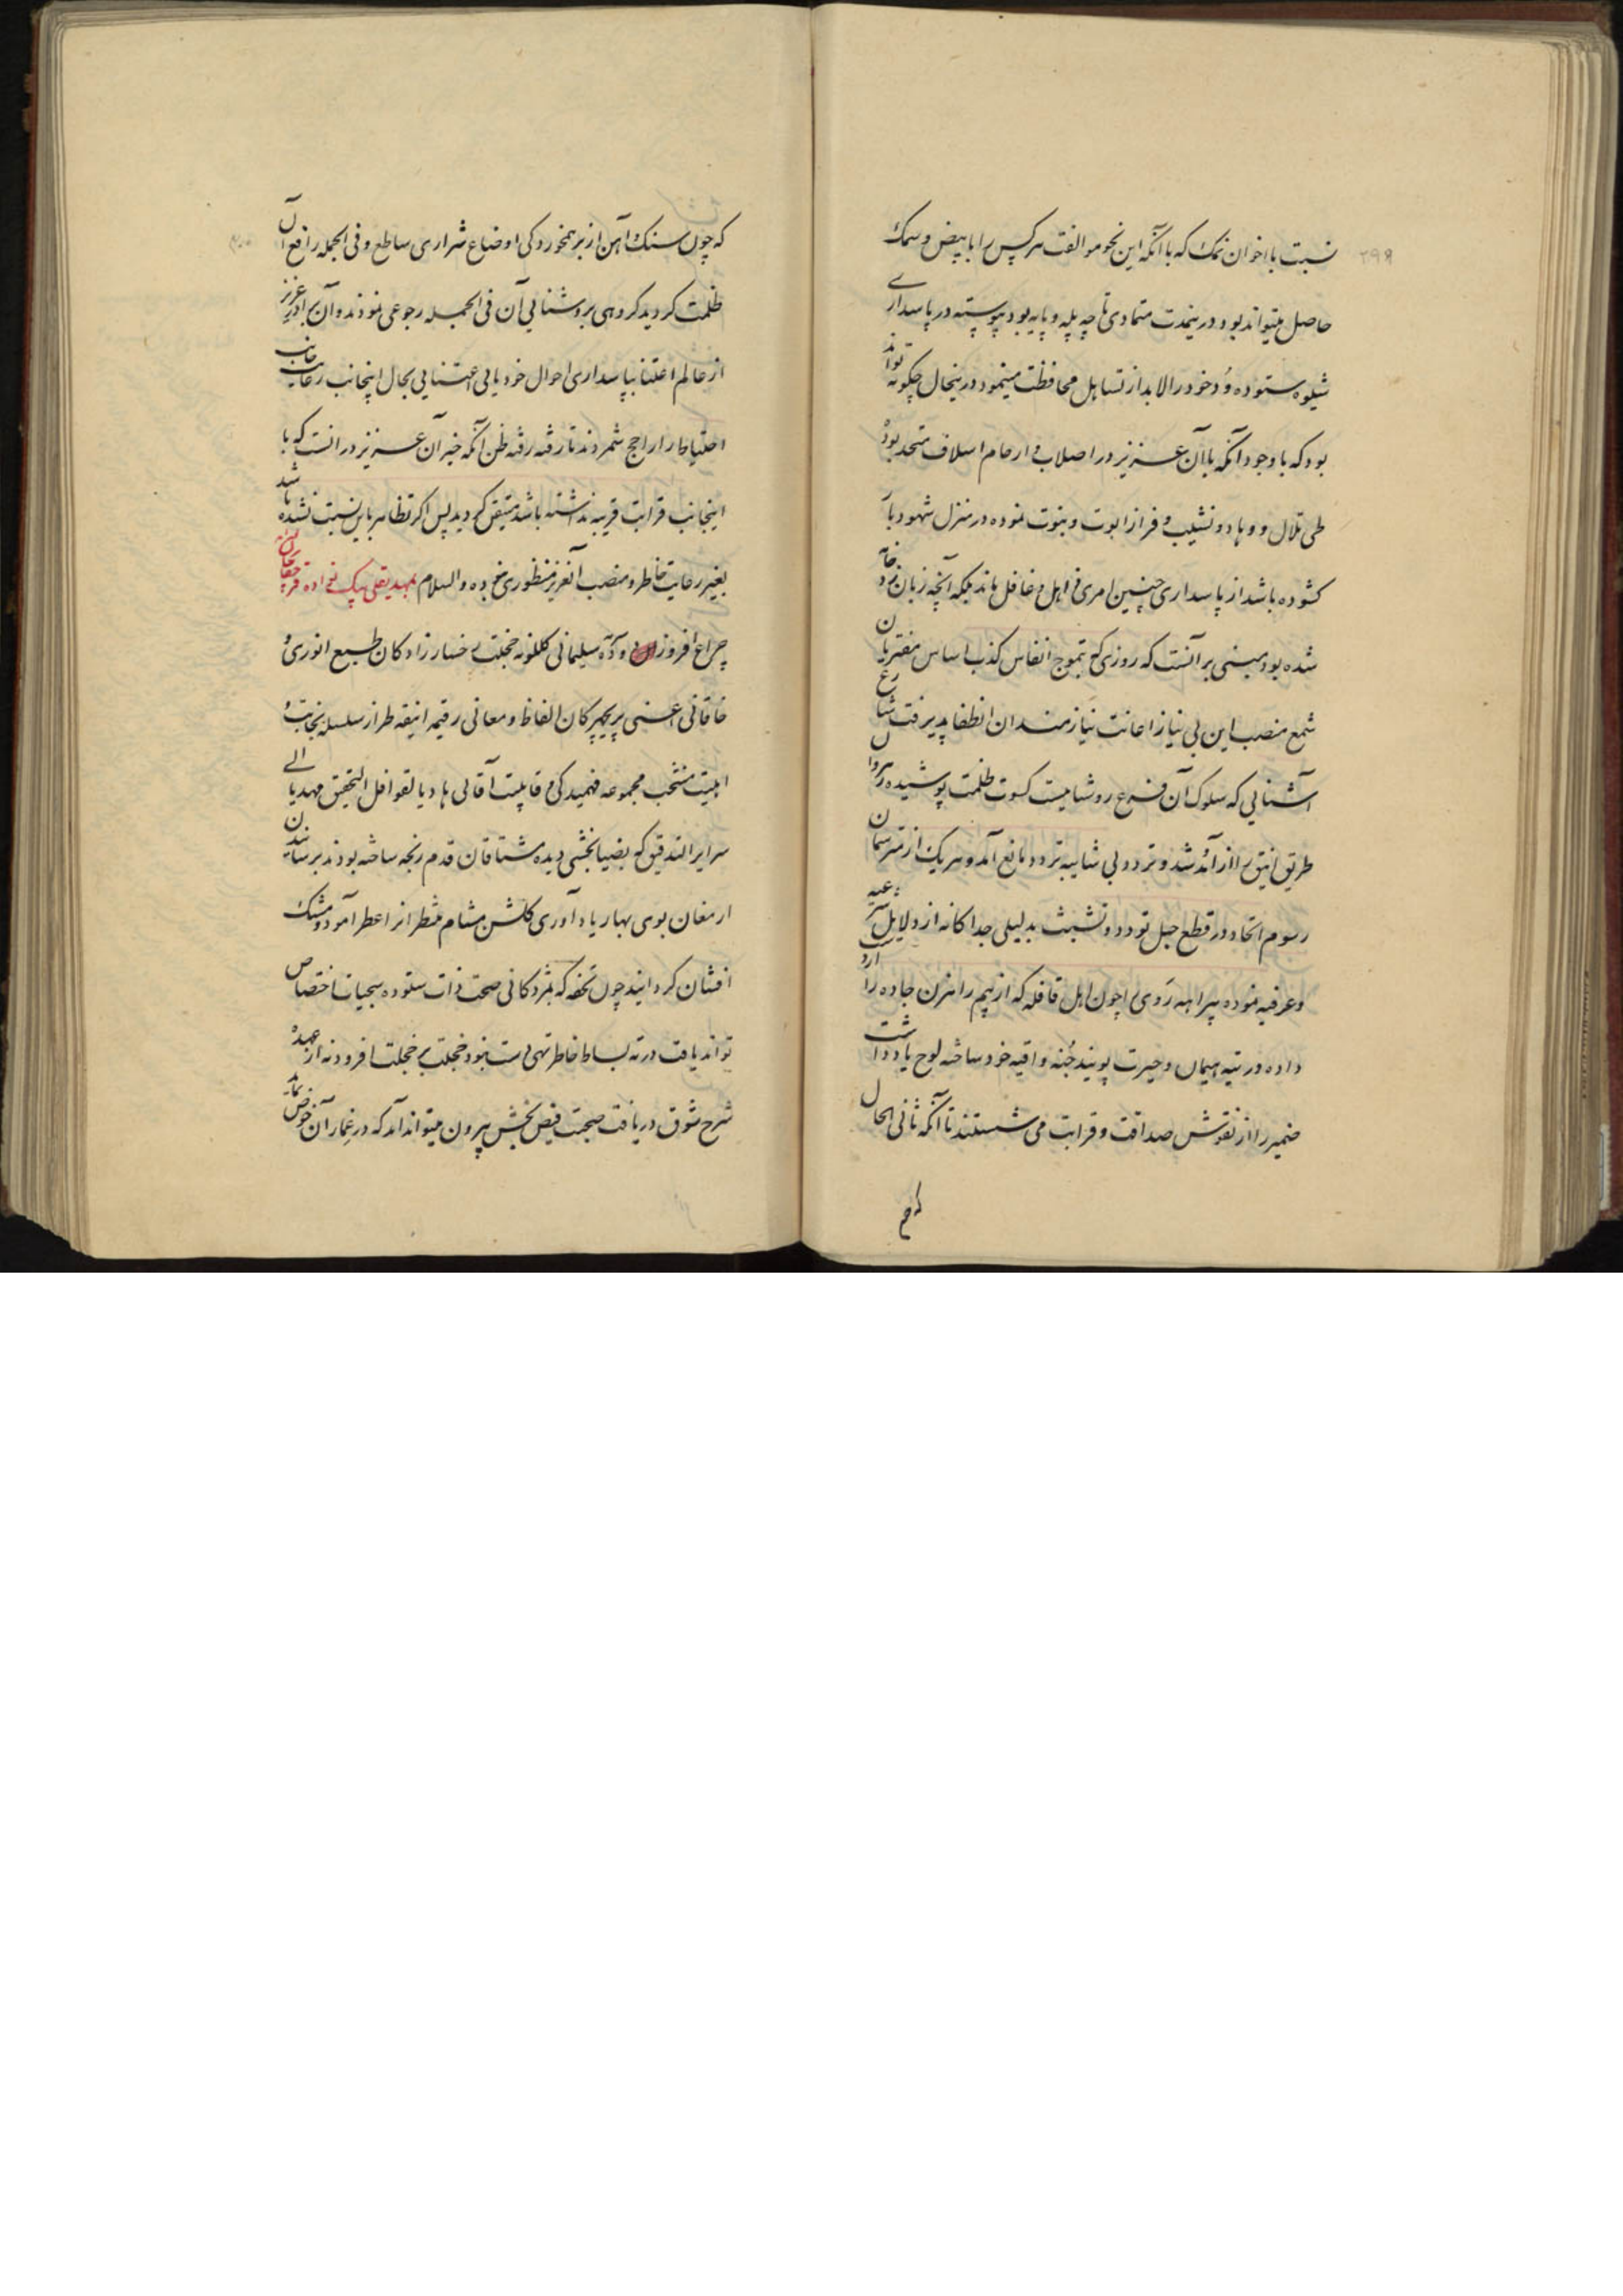 ۲۹۹
نسبت با اخوان نمک که با آنکه این نحو موالفت هر کس را با بیض و سمک
حاصل میتواند بود در ینمدت متمادی تا چه پله و پایه بود پیوسته در پاسداری
شیوه ستوده وُد خود را لابد از تساهل محافظت مینمود درینحال چگونه تواند
بود که با وجود آنکه با آن عزیز در اصلاب و ارحام اسلاف متحد بوده
طی تلال و وهاد و نشیب و فراز ابوت و بنوت نموده در منزل شهود بار
کشوده باشد از پاسداری چنین امری ذاهل و غافل ماند بلکه آنچه زبان زد خامه
شده بود مبنی بر آنست که روزی که بتموج انفاس کذب اساس مفتریان
شمع منصب این بی نیاز اعانت نیازمندان انطفا پذیرفت شارع
آشنایی که سلوک آن فرع روشناییست کسوت ظلمت پوشیده رهروان
طریق انیق را از آمد شد و تردد بی شایبه تردد مانع آمد و هر یک از مترسمان
رسوم اتحاد در قطع حبل تودد و تشبث بدلیلی جداکانه از دلایل شرعیه
و عرفیه نموده بیراهه رَوی را چون اهل قافله که از بیم راهزن جاده را از دست
داده در تیه هیمان و حیرت پویند جُنه واقیه خود ساخته لوح یادداشت
ضمیر را از نقوش صداقت و قرابت می شستند تا آنکه ثانی الحال
که چون سنک و آهن از برهمخوردکی اوضاع شراری ساطع و فی الجمله رافع آن
ظلمت کردید کروهی بروشنایی آن فی الجمله رجوعی نمودند و آن برادر عزیز
از عالم اعتنا بپاسداری احوال خود یا بی اعتنایی بحال اینجانب رعایت جانب
احتیاط را راجح شمردند تا رفته رفته ظن آنکه خیر آن عزیز در انست که با
اینجانب قرابت قریبه نداشته باشد متیقن کردید پس اگر تظاهر باین نسبت نشده باشد
بغیر رعایت خاطر و منصب آنعزیز منظوری نبوده والسلام بمهدیقلی بیک نواده قرچقای خان
چراغ افروز دوده سلیمانی کلکونه خجلت رخسار زادکان طبع انوری و
خاقانی اعنی پریچهرکان الفاظ و معانی رقیمه انیقه طراز سلسله نجابت و
اهلیت منتخب مجموعه فهمیدکی و قابلیت آقائی هادیا لقوافل التحقیق مهدیا الی
سرایر التدقیق که بضیا بخشی دیده مشتاقان قدم رنجه ساخته بودند برسانیدن
ارمغان بوی بهار یادآوری کلشن مشام منتظر انرا عطرآمود و مشک
افشان کردانیدند چون تحفه که بمژدکانی صحت ذات ستوده سجیات اختصاص
تواند یافت در ته بساط خاطر تهی دست نبود خجلت بر خجلت افزود نه از عهده
شرح شوق دریافت صحبت فیض بخش بیرون میتواند آمد که در غمار آن خوض نماید